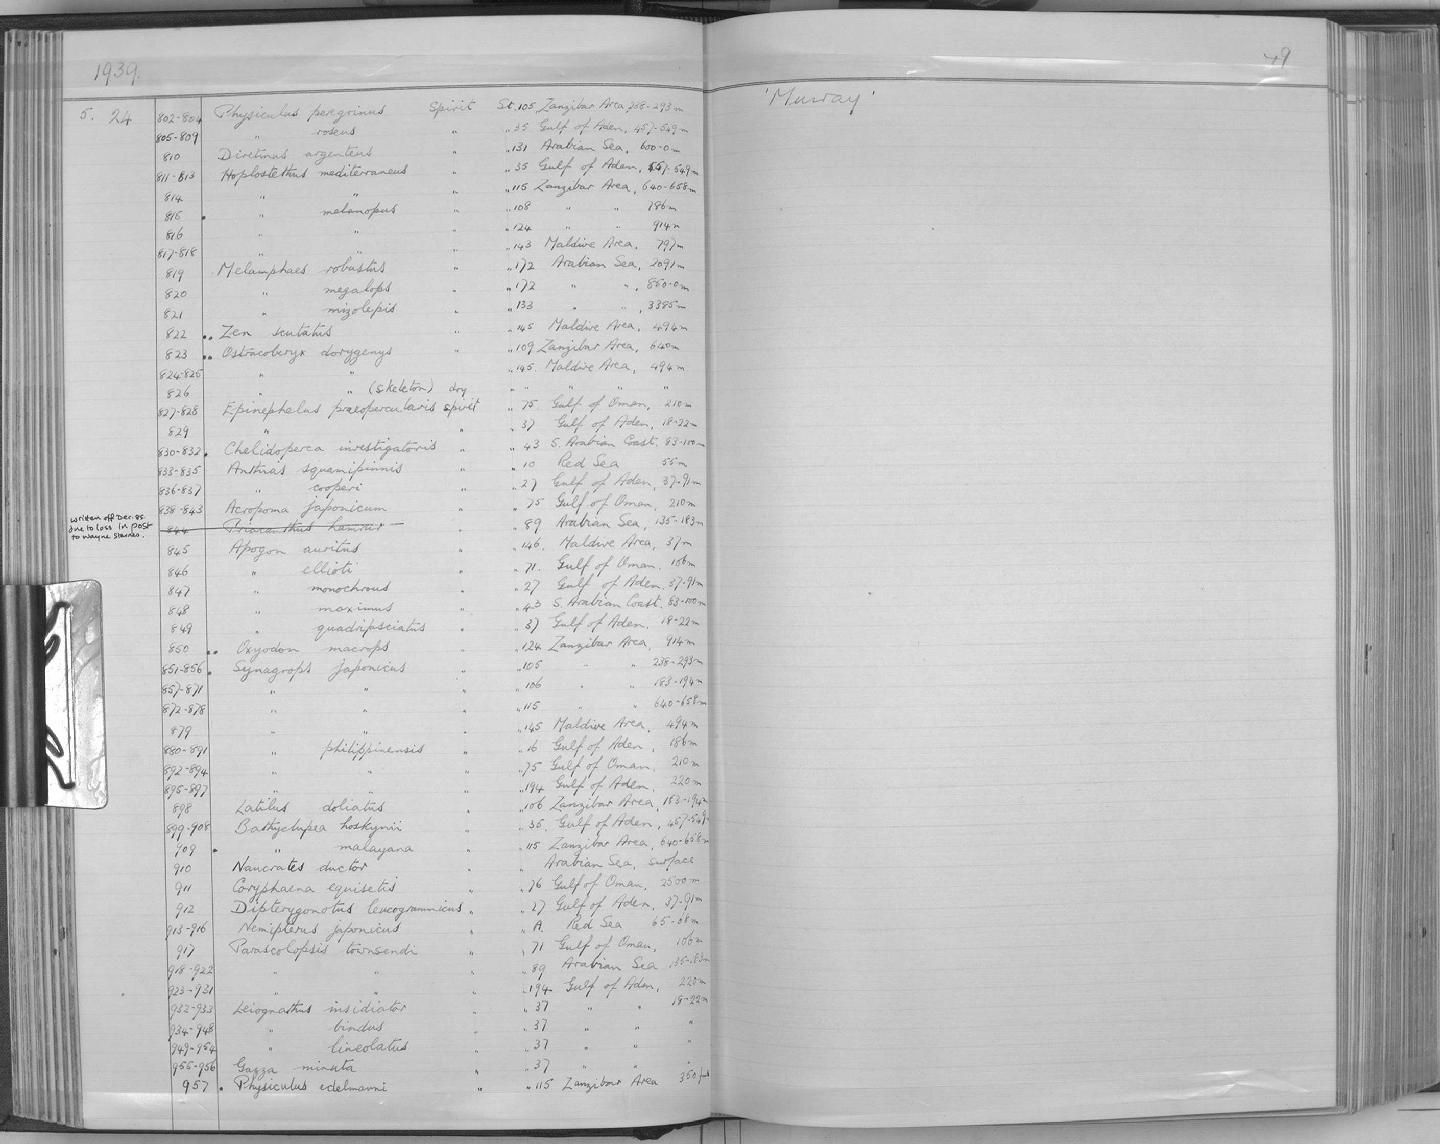 1939.
49
'Murray'
5. 24 802-804 Physiculus peregrinus Spirit St. 105 Zanzibar Area, 238-293m
805-809 " roseus " " 35 Gulf of Aden, 457-549m
810 Diretmus argenteus " " 131 Arabian Sea, 600-0m
811-813 Hoplostethus mediterraneus " " 35 Gulf of Aden, 457-549m
814 " " " " 115 Zanzibar Area, 640-658m
815 . " melanopus " " 108 " " 786m
816 " " " " 124 " " 914m
817-818 " " " " 143 Maldive Area, 797m
819 Melamphaes robustus " " 172 Arabian Sea, 2091m
820 " megalops " " 172 " ", 850-0m
821 " mizolepis " " 133 " ", 3385m
822 .. Zen scutatus " " 145 Maldive Area, 494m
823 .. Ostracoberyx dorygenys " " 109 Zanzibar Area, 640m
824-825 " " " 145. Maldive Area, 494m
826 " " (skeleton) dry " " " " "
827-828 Epinephelus praeopercularis spirit " 75 Gulf of Oman, 210m
829 " " " " 37 Gulf of Aden, 18-22m
830-832 . Chelidoperca investigatoris " " 43 S. Arabian Coast, 83-100m
833-835 Anthias squamipinnis " " 10 Red Sea 55m
836-837 " cooperi " " 27 Gulf of Aden, 37-91m
838-843 Acropoma japonicum " " 75 Gulf of Oman, 210m
Written off Dec. 85
due to loss in post
to Wayne Starnes.
844 Priacanthus hamrur " " 89 Arabian Sea, 135-183m
845 Apogon auritus " " 146. Maldive Area, 37m
846 " ellioti " " 71. Gulf of Oman. 106m
847 " monochrous " " 27 Gulf of Aden, 37-91m
848 " maximus " " 43 S. Arabian Coast. 83-100m
849 " quadrifasciatus " " 37 Gulf of Aden. 18-22m
850 .. Oxyodon macrops " " 124 Zanzibar Area, 914m
851-856 . Synagrops japonicus " " 105 " " 238-293m
857-871 " " " " 106 " " 183-194m
872-878 " " " " 115 " " 640-658m
879 " " " " 145 Maldive Area, 494m
880-891 " philippinensis " " 16 Gulf of Aden, 186m
892-894 " " " " 75 Gulf of Oman, 210m
895-897 " " " " 194 Gulf of Aden, 220m
898 Latilus doliatus " " 106 Zanzibar Area, 183-194m
899-908 Bathyclupea hoskynii " " 35. Gulf of Aden, 457-549m
909 . " malayana " " 115 Zanzibar Area, 640-658m
910 Naucrates ductor " " Arabian Sea, surface
911 Coryphaena equisetis " " 76 Gulf of Oman, 2500m
912 Dipterygonotus leucogrammicus " " 27 Gulf of Aden, 37-91m
913-916 Nemipterus japonicus " " A. Red Sea
917 Parascolopsis townsendi " " 71 Gulf of Oman, 106m
918-922 " " " " 89 Arabian Sea 135-183m
923-931 " " " " 194 Gulf of Aden, 220m
932-933 Leiognathus insidiator " " 37 " " 18-22m
934-948 " bindus " " 37 " " "
949-954 " lineolatus " " 37 " " "
955-956 Gazza minuta " " 37 " " "
957 . Physiculus edelmanni " " 115 Zanzibar Area